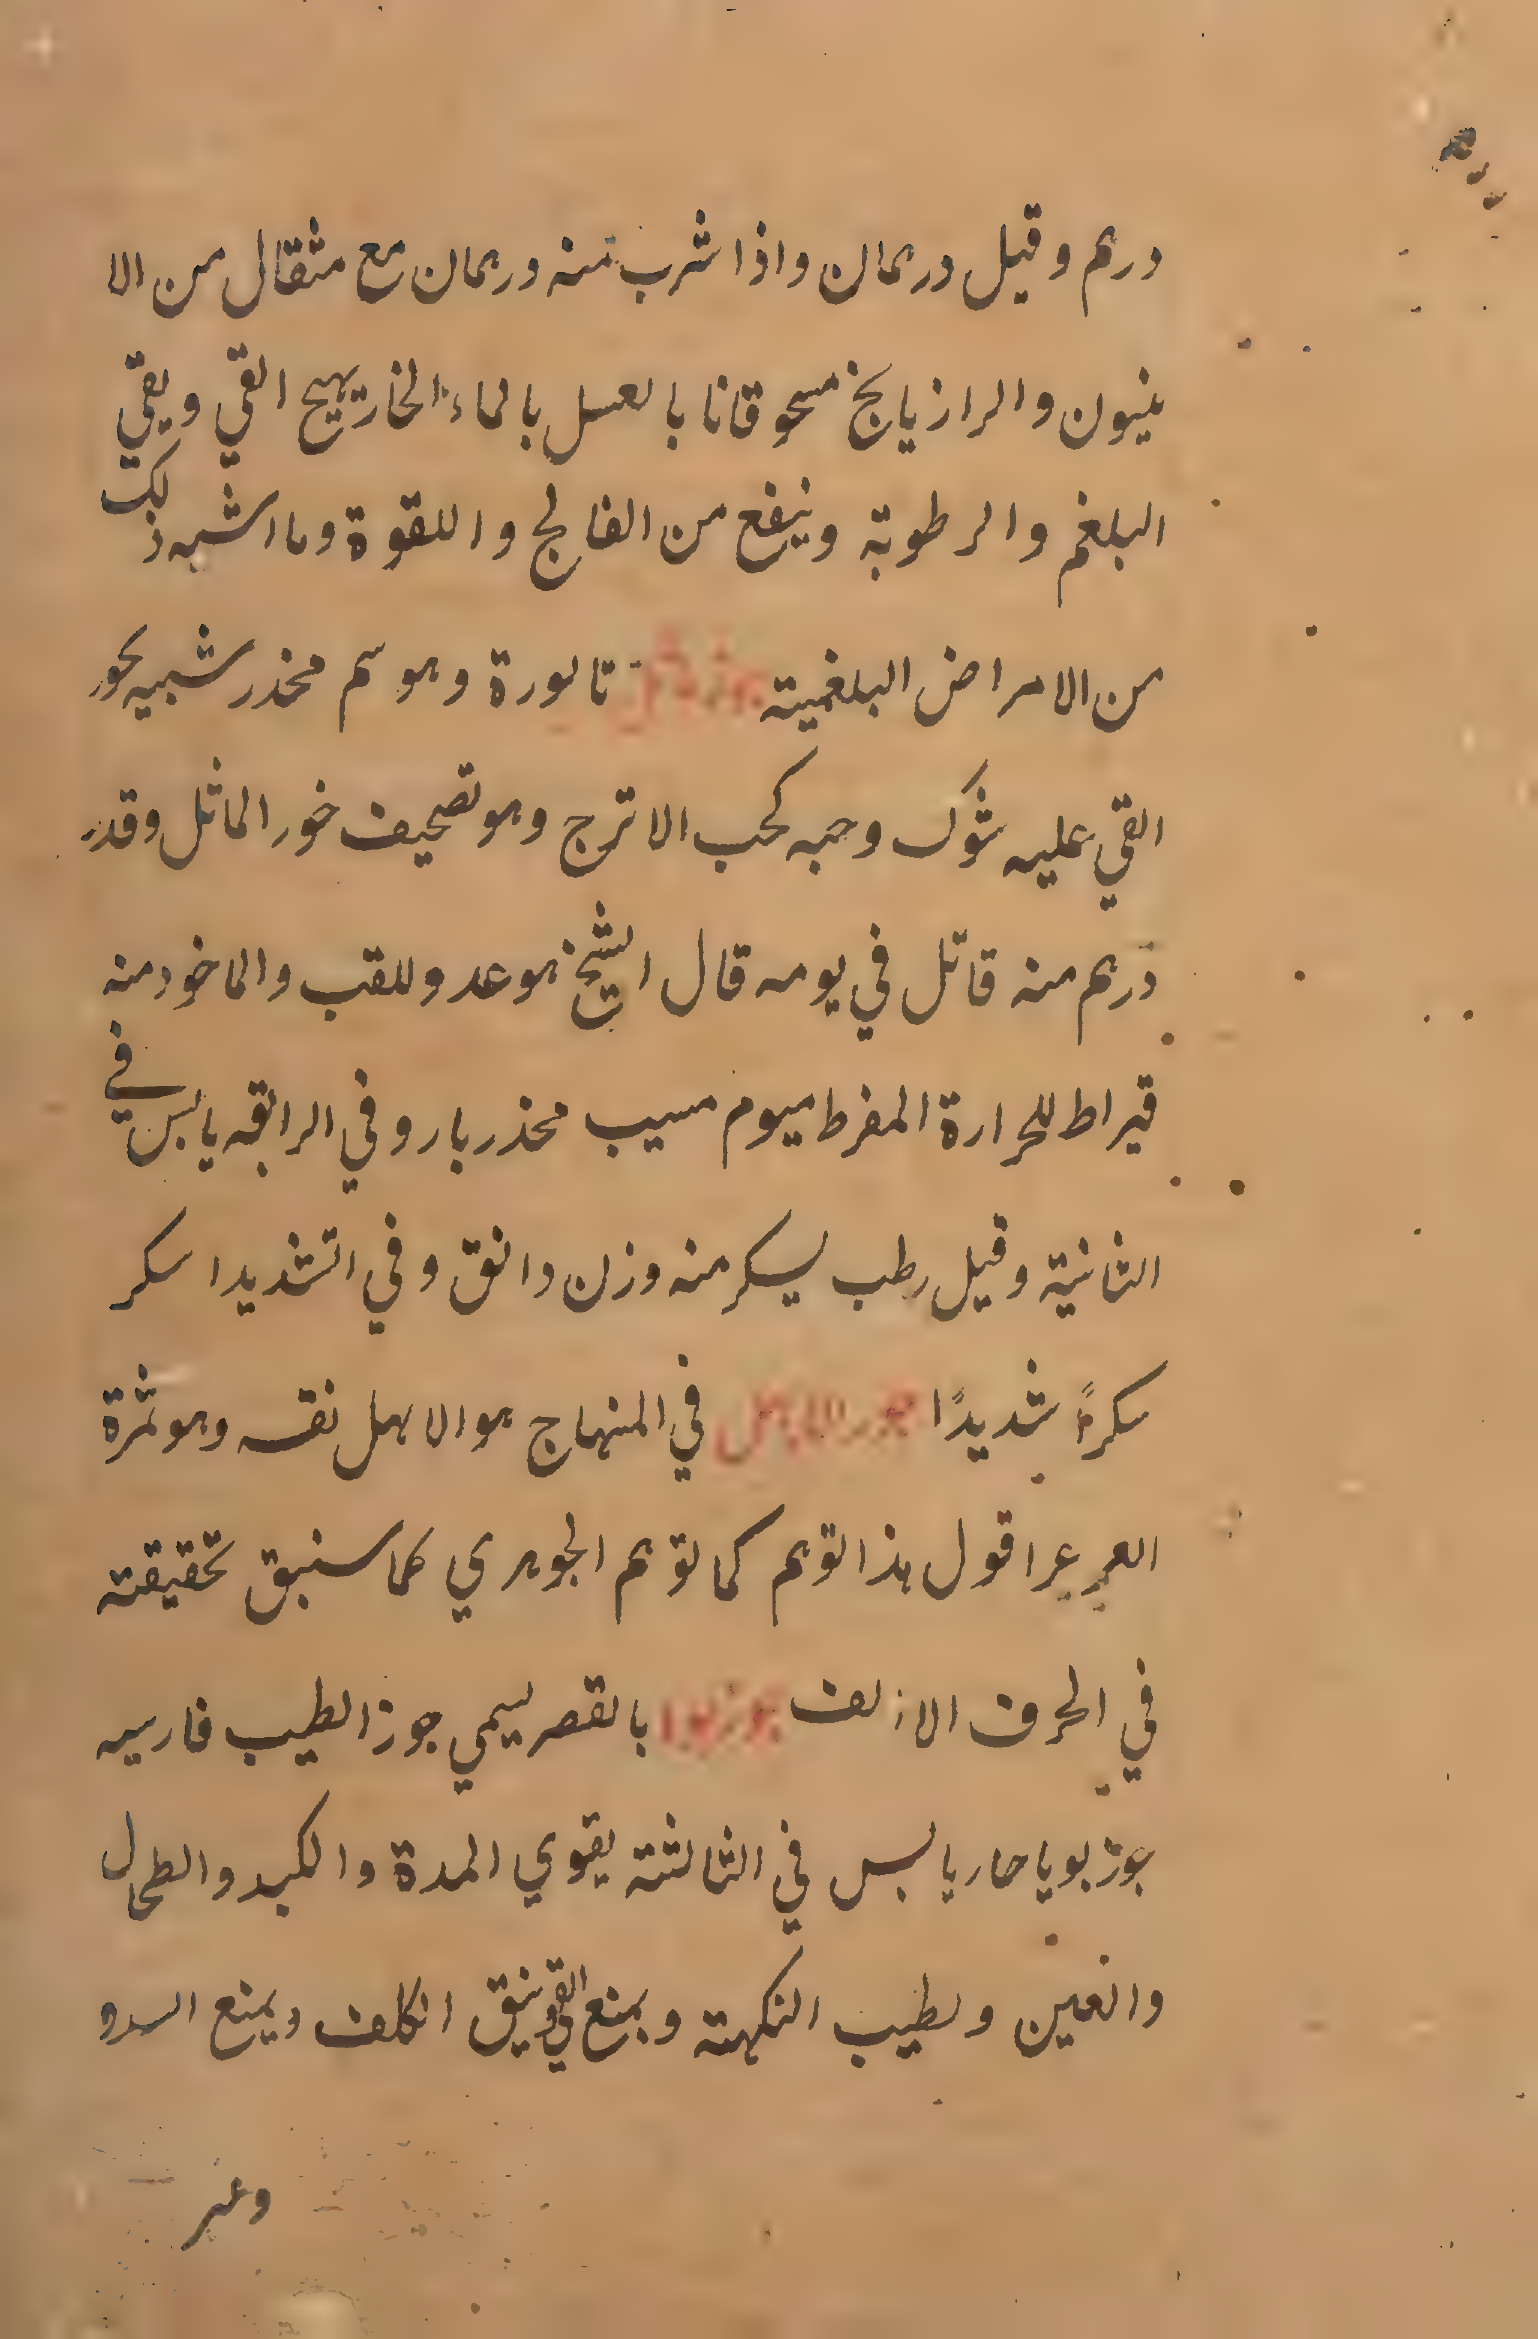 درهم وقيل درهمان واذا شرب منه درهمان مع مثقال من الا
ينيون والرازيانج مسحوقانا بالعسل بالماء الحار يهيج القي ويقي
البلغم والرطوبة وينفع من الفالج واللقوة وما اشبه ذلك
من الامراض البلغمية جوز ماثل تاتورة وهو سم مخدر شبيه بجوز
القي عليه شوك وحبه كحب الاترج وهو تصحيف خور الماثل وقدر
درهم منه قاتل في يومه قال الشيخ هو عدو للقب والماخود منه
قيراط للحرارة المفرط ميوم مسيب مخدر بارو في الرابقه يابس في
الثانية وقيل رطب ليسكر منه وزن دانق وفي الشديد اسكر
سكرًا شديدًا جوز الابهل في المنهاج هو الابهل نفسه وهو ثمرة
العرعر اقول هذا توهم كما توهم الجوهري كما سنبق تحقيقته
في الحرف الالف جوزبوا بالقصر ليسمي جوز الطيب فارسيه
جوز بويا حار يابس في الثالثة يقوي المدة والكبد والطحال
والعين ولطيب النكهته ويمنع القي وينق الكلف ويمنع السدو
وعسر